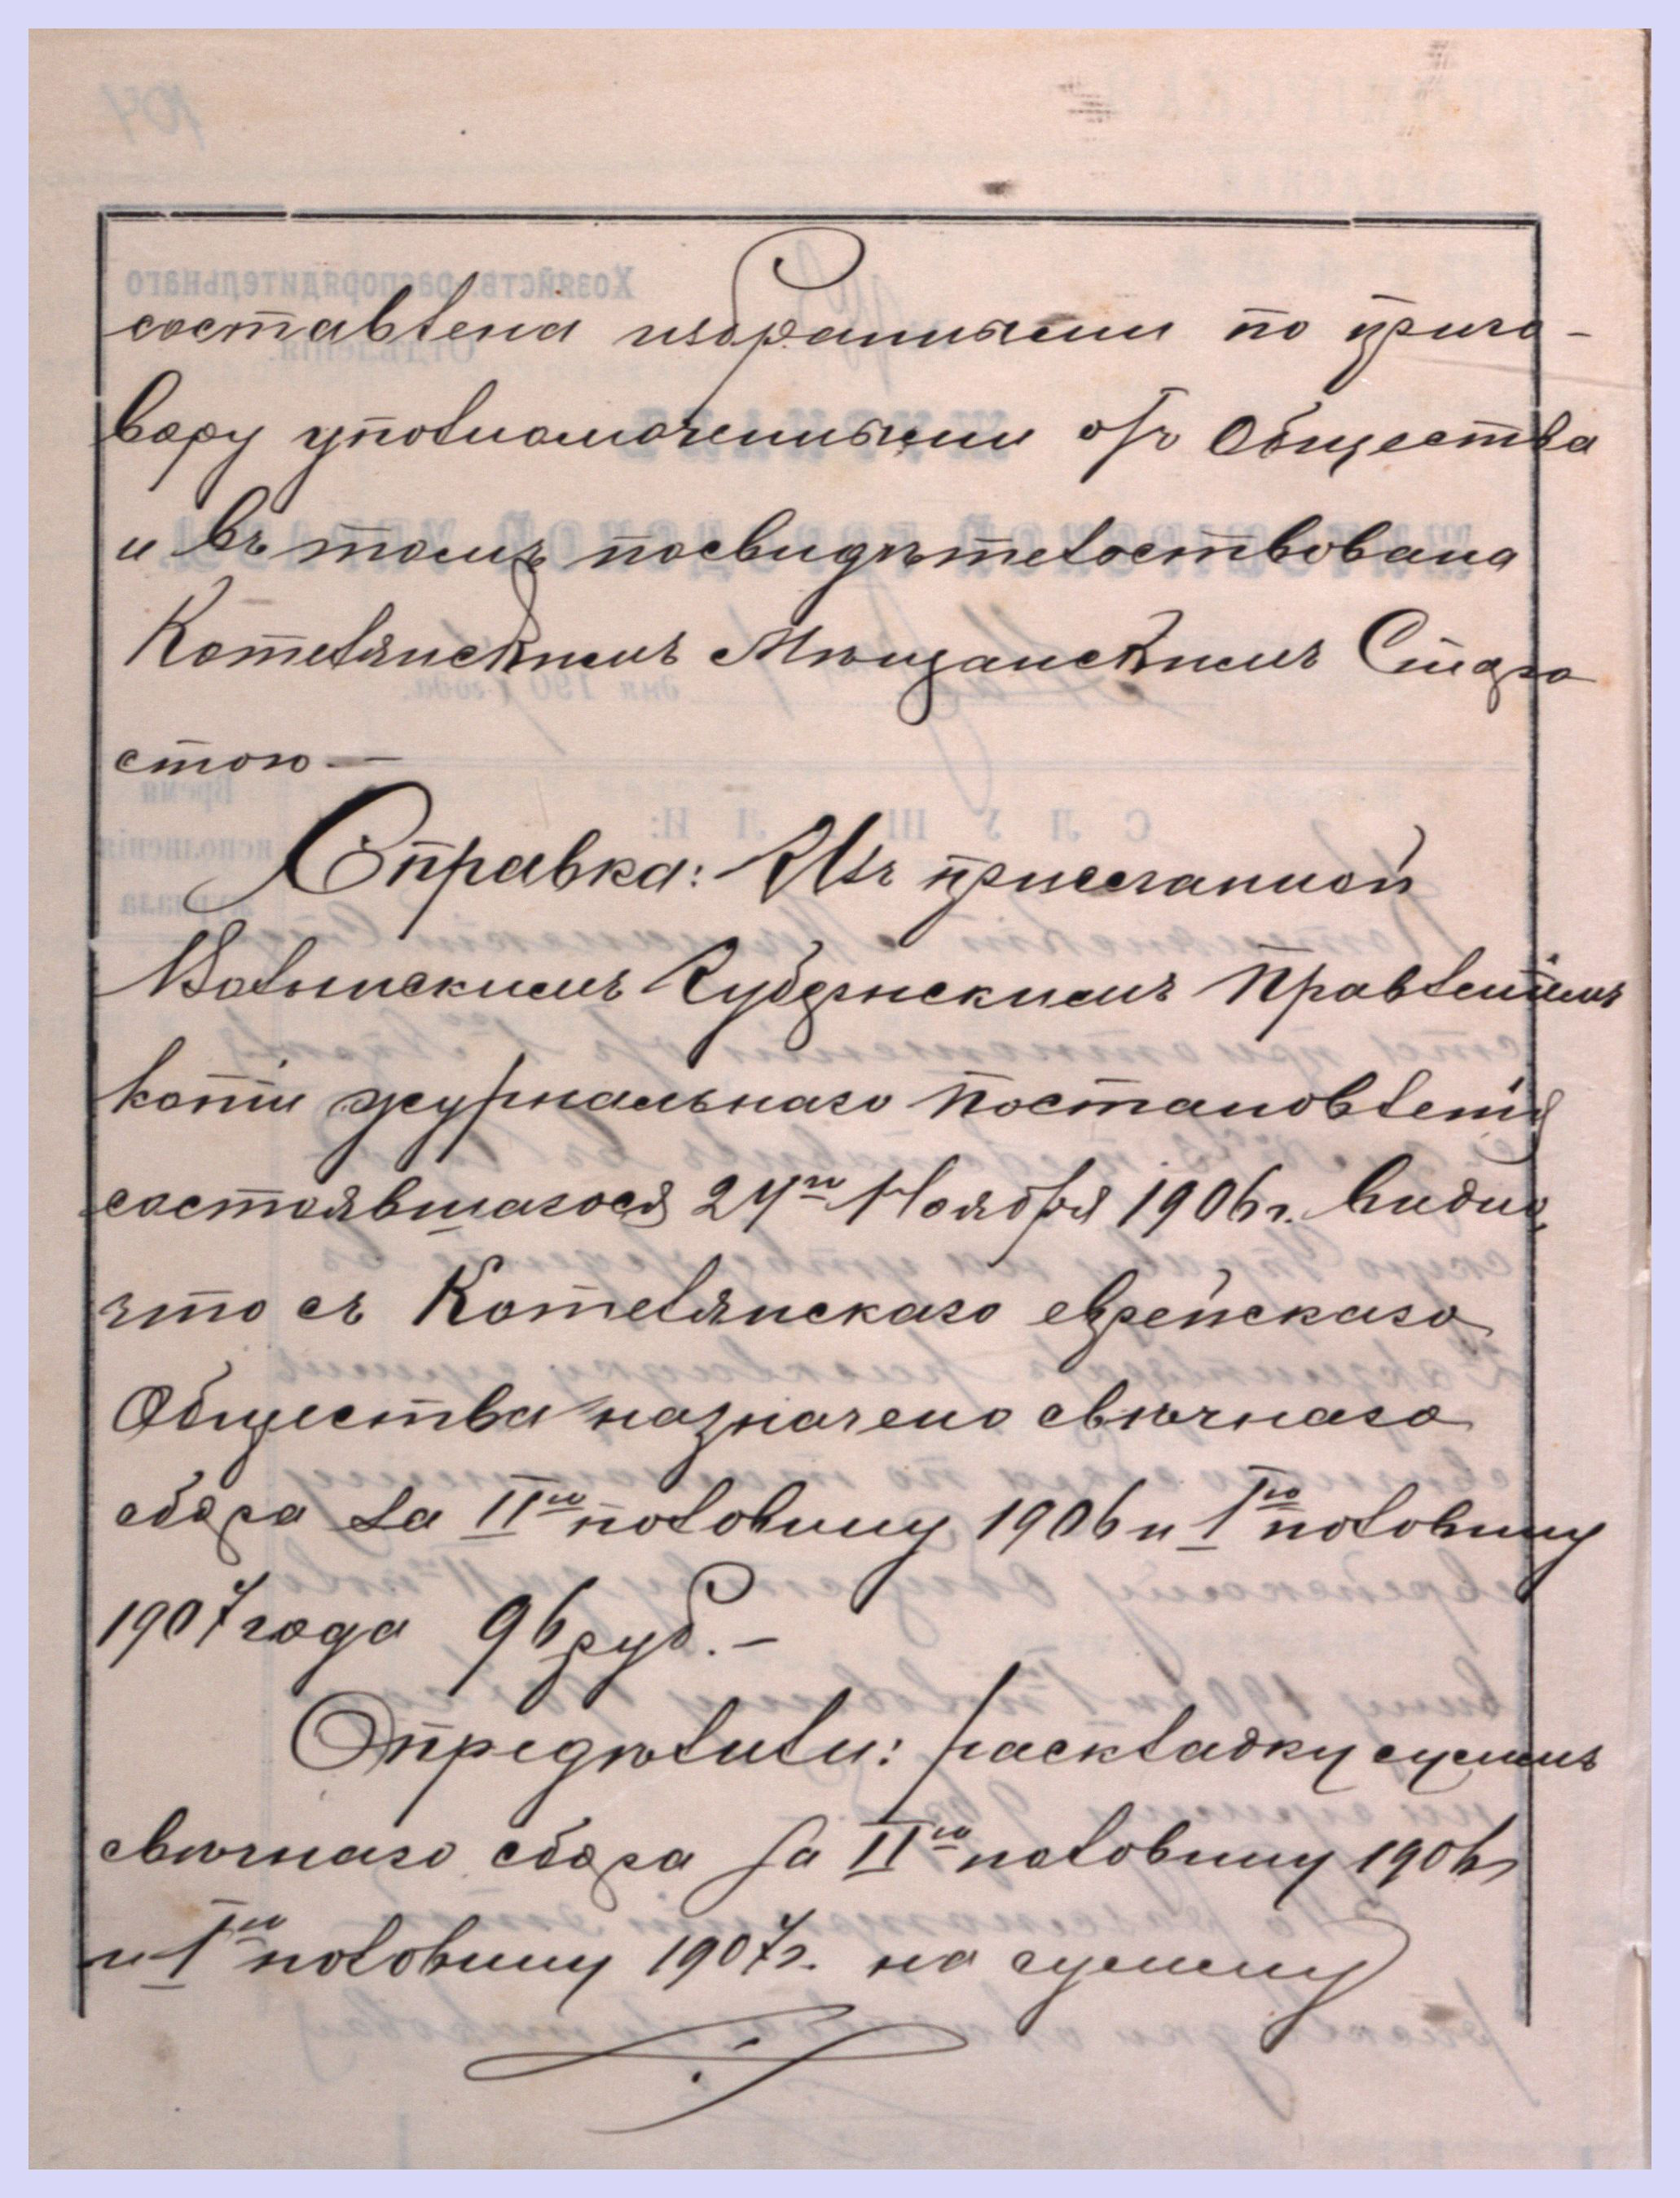 составлена избранными по приго-
вору уполномоченными отъ Общества
и въ томъ посвидѣтельствована
Котелянскимъ Мѣщанскимъ Старо
стою —
Справка: Изъ присланной
Волынскимъ Губернскимъ Правленіемъ
копіи журнальнаго постановленія
состоявшагося 24го Ноября 1906 г. видно,
что съ Котелянскаго еврейскаго
Общества назначено свѣчнаго
сбора за IIю половину 1906 и Iю половину
1907 года 96 руб. —
Опредѣлили: раскладку суммъ
свѣчнаго сбора за IIю половину 1906 г
и Iю половину 1907 г. на сумму